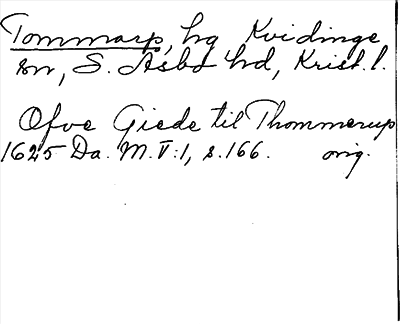 Tommarp, hg Kvidinge
sn, S. Åsbo hd, Krist. l.
Ofve Giede til Thommerup
1625 Da. M. V:1, s. 166. orig.